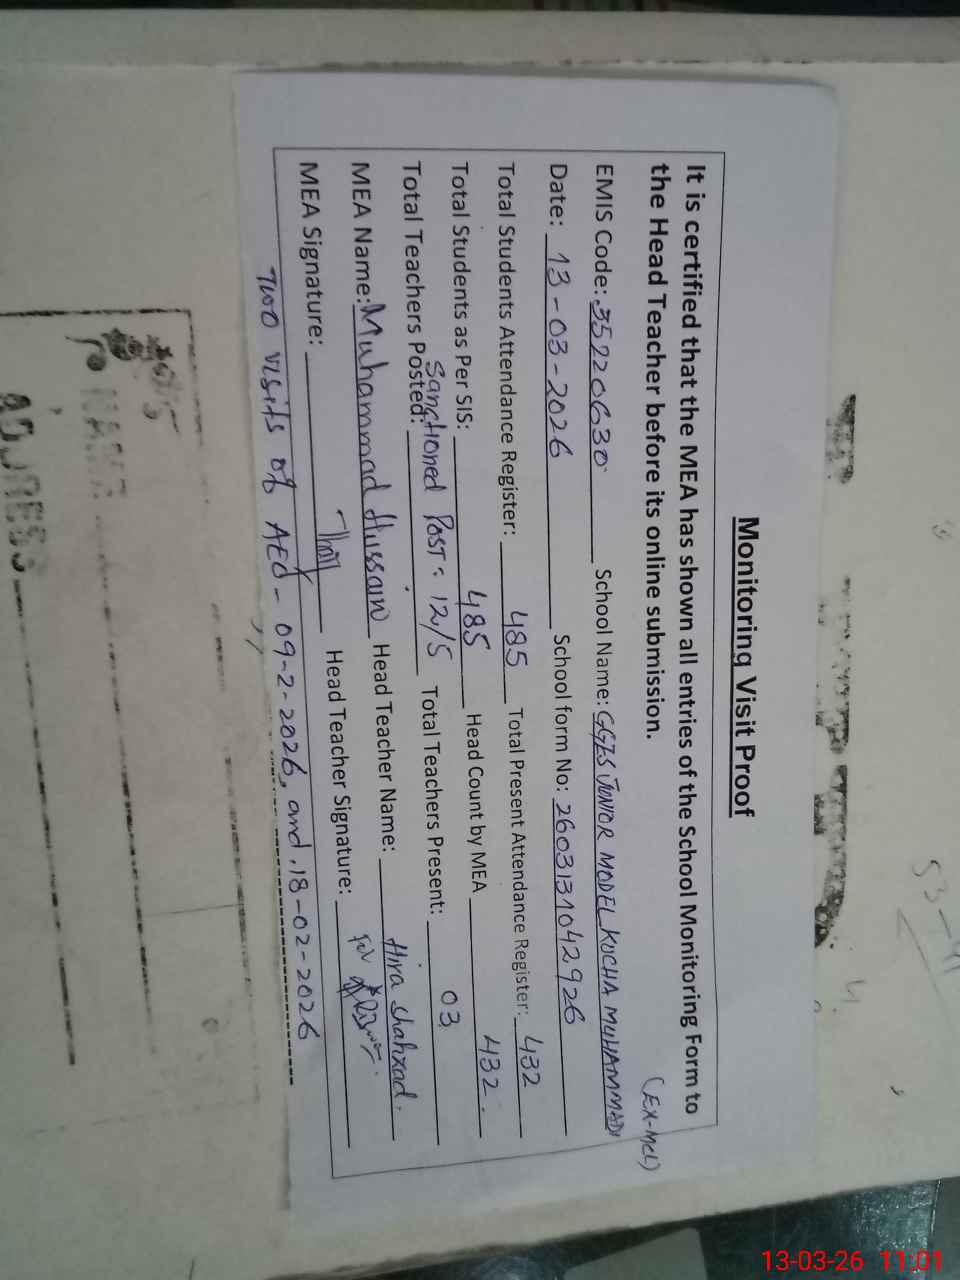 Monitoring Visit Proof
It is certified that the MEA has shown all entries of the School Monitoring Form to
the Head Teacher before its online submission.
(EX-MCL)
EMIS Code: 35220630 School Name: GGES JUNIOR MODEL KUCHA MUHAMMADI
Date: 13-03-2026 School form No: 2603131042926
Total Students Attendance Register: 485 Total Present Attendance Register: 432
Total Students as Per SIS: 485 Head Count by MEA 432.
Sanctioned Post: 12/5
Total Teachers Posted: Total Teachers Present: 03
MEA Name: Muhammad Hussain Head Teacher Name: Hira Shahzad.
MEA Signature: Head Teacher Signature: For
Two visits of AEO - 09-2-2026, and, 18-02-2026
NAME
ADDRESS
53-41
13-03-26 11:01